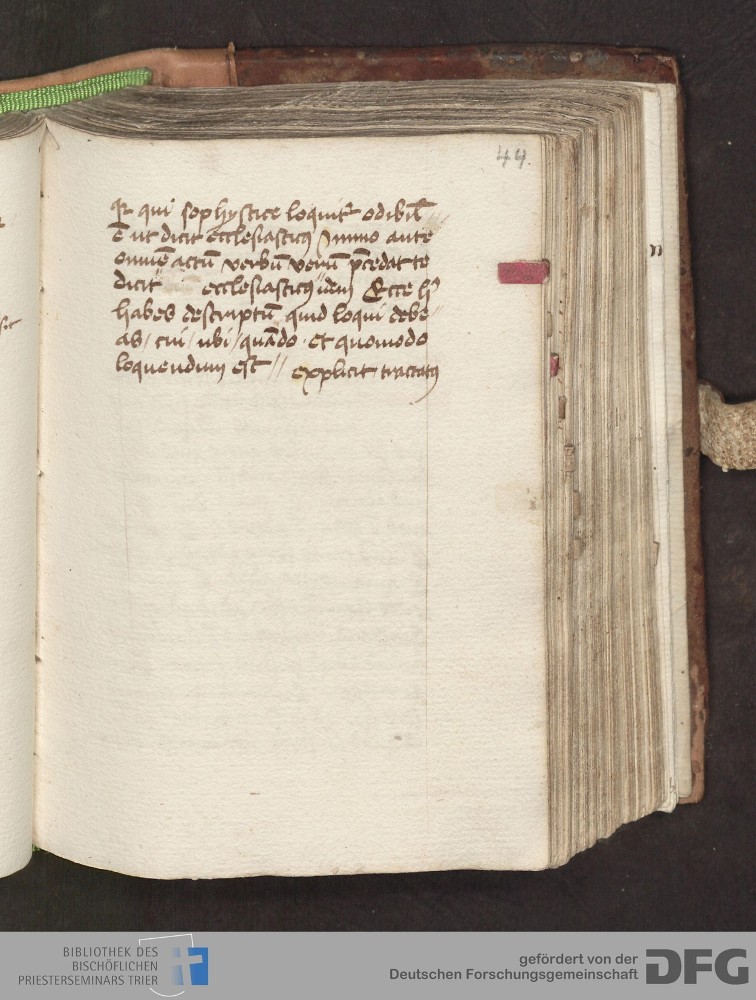 qui sophystice loquit᷑ odibil̄
ē ut dicit ecclesiasticꝰ Summo ante
omnē actū verbū verū p̄cedat te
dicit ecclesiasticꝰ idem Ecce hͦ
habes descriptū quid loqui debe
as / cui / ubi / quādo · et quomodo
loquendum est // explicit tractatꝰ
BIBLIOTHEK DES
BISCHÖFLICHEN
PRIESTERSEMINARS TRIER
gefördert von der
Deutschen Forschungsgemeinschaft
DFG